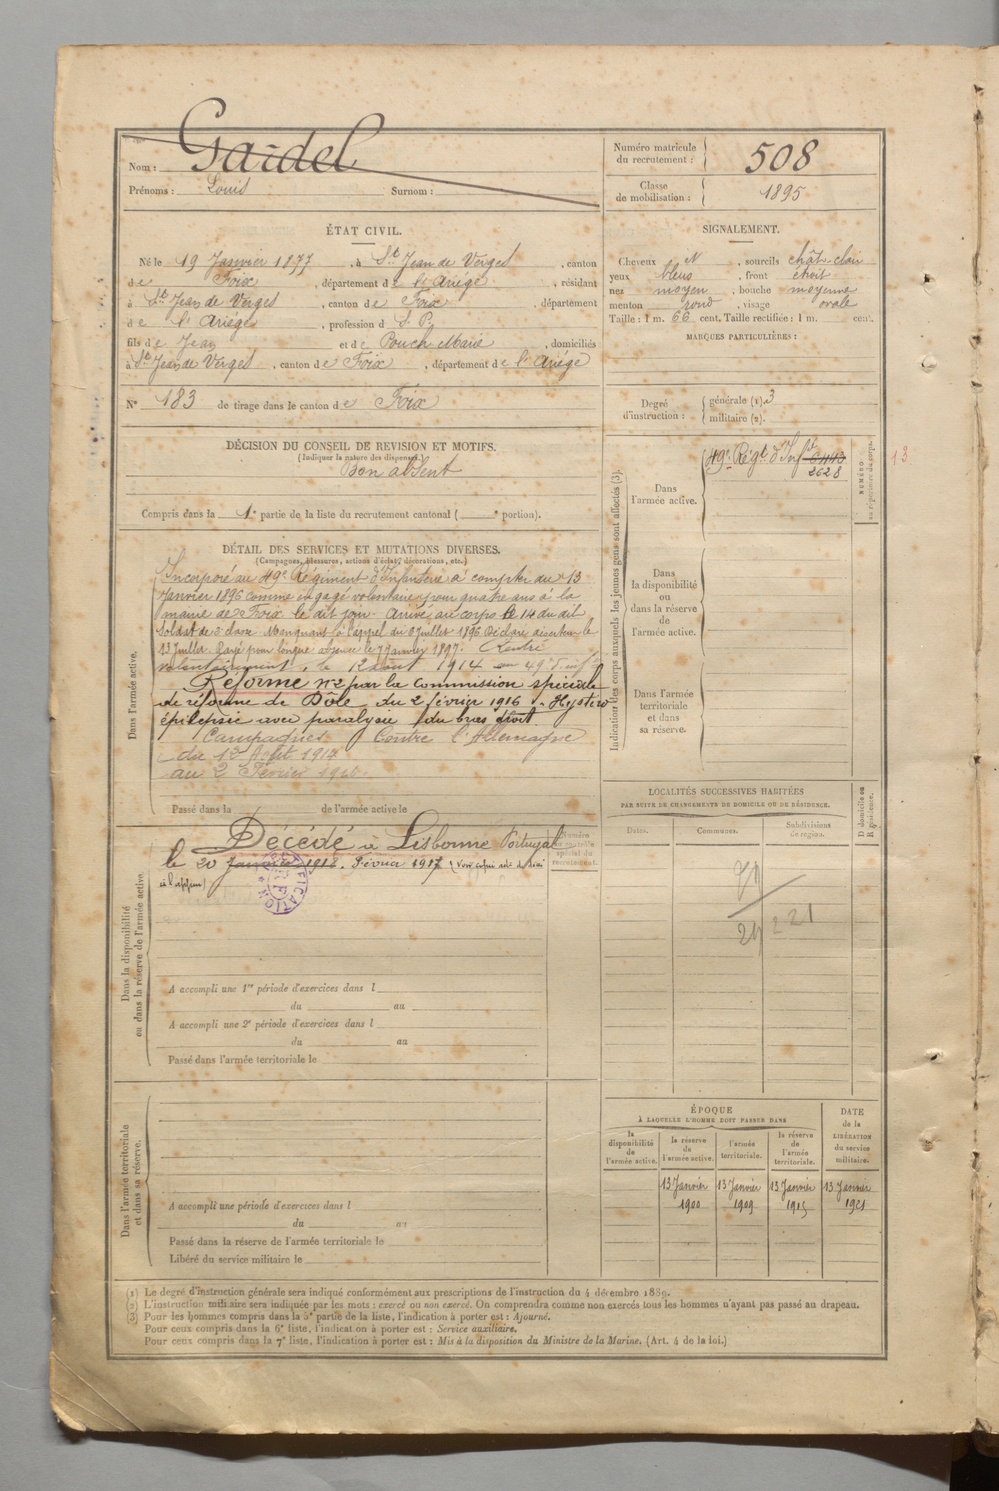 Nom : Gardel
Prénoms : Louis Surnom :
Numéro matricule du recrutement : 508
Classe de mobilisation : 1895
ÉTAT CIVIL.
Né le 19 Janvier 1877, à St Jean de Verges, canton
de Foix, département de l'Ariége, résidant
à St Jean de Verges, canton de Foix, département
de l'Ariége, profession d S. P.
fils de Jean et de Pouch Marie, domiciliés
à St Jean de Verges, canton de Foix, département de l'Ariége
N° 183 de tirage dans le canton de Foix
SIGNALEMENT.
Cheveux N, sourcils chât. clair
yeux bleus, front étroit
nez moyen, bouche moyenne
menton rond, visage ovale
Taille : 1 m. 66 cent. Taille rectifiée : 1 m. cent.
MARQUES PARTICULIÈRES :
Degré d'instruction : générale (1). 3
militaire (2).
DÉCISION DU CONSEIL DE REVISION ET MOTIFS.
(Indiquer la nature des dispenses)
Bon absent
Compris dans la 1e partie de la liste du recrutement cantonal ( e portion).
DÉTAIL DES SERVICES ET MUTATIONS DIVERSES.
(Campagnes, blessures, actions d'éclat, décorations, etc.)
Dans l'armée active.
Incorporé au 49e Régiment d'Infanterie à compter du 13
Janvier 1896 comme engagé volontaire pour quatre ans à la
mairie de Foix le dit jour. Arrivé au corps le 14 du dit
Soldat de 2e classe. Manquant à l'appel du 6 Juillet 1896 Déclaré déserteur le
13 Juillet. Rayé pour longue absence le 7 Janvier 1897. Rentré
volontairement, le 12 août 1914 au 49e d'Infie
Réformé N°2 par la Commission spéciale
de réforme de Dôle du 2 février 1916 - Hystéro
épilepsie avec paralysie du bras droit
Campagnes Contre l'Allemagne
du 12 Août 1914
au 2 Février 1916
Passé dans la de l'armée active le
Indication des corps auxquels les jeunes gens sont affectés (3).
NUMÉRO au répertoire du corps.
Dans l'armée active.
49e Régt d'Infie
2628
13
Dans la disponibilité ou dans la réserve de l'armée active.
Dans l'armée territoriale et dans sa réserve.
LOCALITÉS SUCCESSIVES HABITÉES
PAR SUITE DE CHANGEMENTS DE DOMICILE OU DE RÉSIDENCE.
Dates. Communes. Subdivisions de région. D domicile ou R résidence.
221
Dans la disponibilité ou dans la réserve de l'armée active.
Numéro au contrôle spécial du recrutement.
Décédé à Lisbonne Portugal
le 20 Janvier 1918. Février 1917
A accompli une 1re période d'exercices dans l
du au
A accompli une 2e période d'exercices dans l
du au
Passé dans l'armée territoriale le
Dans l'armée territoriale et dans sa réserve.
A accompli une période d'exercices dans l
du au
Passé dans la réserve de l'armée territoriale le
Libéré du service militaire le
ÉPOQUE
À LAQUELLE L'HOMME DOIT PASSER DANS
la disponibilité de l'armée active. la réserve de l'armée active. l'armée territoriale. la réserve de l'armée territoriale.
DATE de la LIBÉRATION du service militaire.
13 Janvier 13 Janvier 13 Janvier 13 Janvier
1900 1909 1915 1921
(1) Le degré d'instruction générale sera indiqué conformément aux prescriptions de l'instruction du 4 décembre 1889.
(2) L'instruction militaire sera indiquée par les mots : exercé ou non exercé. On comprendra comme non exercés tous les hommes n'ayant pas passé au drapeau.
(3) Pour les hommes compris dans la 5e partie de la liste, l'indication à porter est : Ajourné.
Pour ceux compris dans la 6e liste, l'indication à porter est : Service auxiliaire.
Pour ceux compris dans la 7e liste, l'indication à porter est : Mis à la disposition du Ministre de la Marine. (Art. 4 de la loi.)